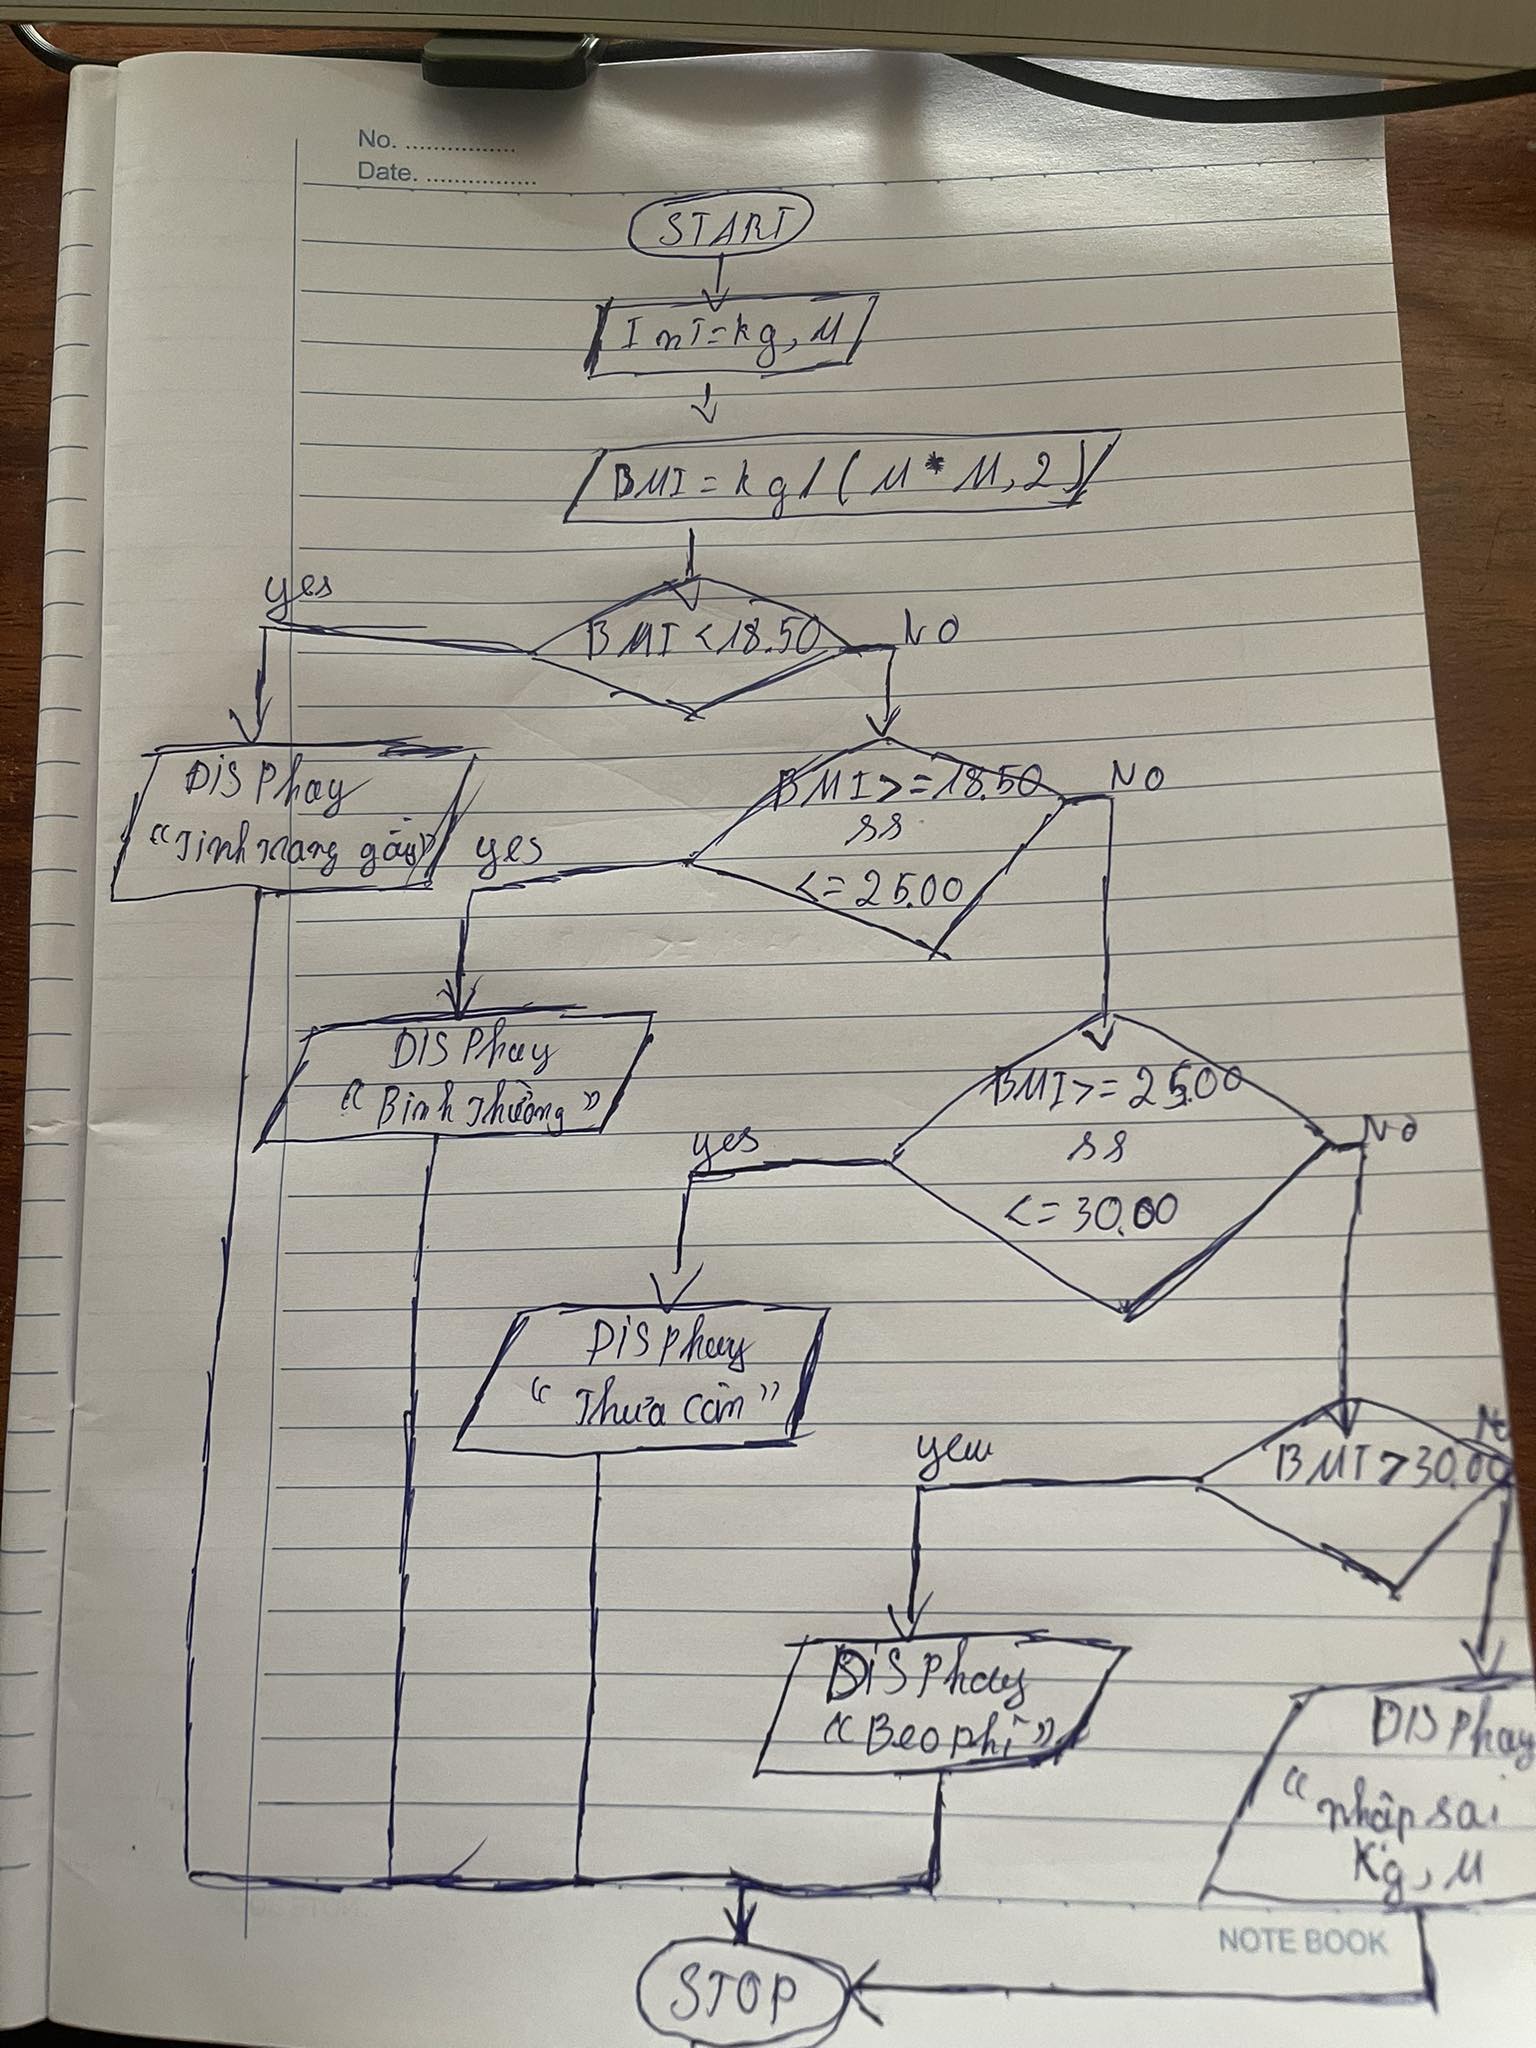 No. ...............
Date. ...............
START
Int=kg, M
BMI = kg / (M * M, 2)
yes
BMI < 18.50
NO
DISPhay
"Tinh trang gầy"
yes
BMI >= 18.50
ss
<= 25.00
NO
DISPhay
"Binh Thường"
yes
BMI >= 25.00
ss
<= 30.00
NO
DISPhay
"Thừa cân"
yew
BMI > 30.00
N
DISPhay
"Beo phì"
DISPhay
"nhập sai
Kg, M
NOTE BOOK
STOP